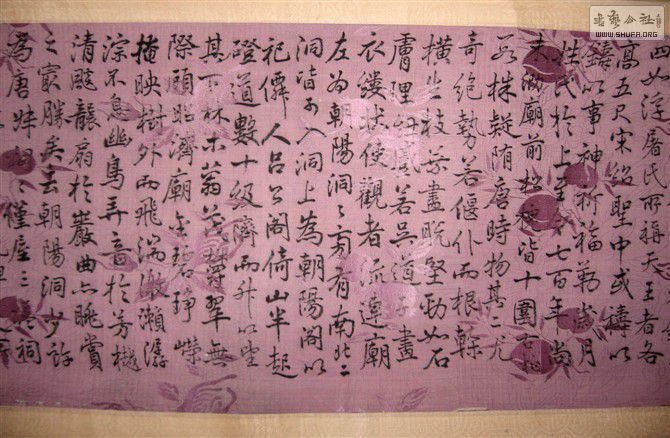 四如浮屠氏所稱天王者各
高五尺宋紹聖中或鑄以
鑄以事神祈福勒歲月
姓氏於上至今七百年尚
未泐廟前松柏皆十圍有
數株疑隋唐時物其二尤
奇絕勢若偃仆而根幹
橫出枝葉盡脫堅勁如石
膚理若吳道子畫
衣縷狀使觀者流連廟
左為朝陽洞洞旁有南北二
洞皆可入洞上為朝陽閣以
祀僊人呂公閣倚山半起
磴道數十級躋而升以坐
其下林木蓊翠無
際顧昭濟廟金碧崢嶸
掩映樹外而飛湍激瀨潺
淙不息幽鳥弄音於芳樾
清飈襲扇於巖曲亦眺賞
之最勝矣去朝陽洞少許
為唐妹祠祠僅屋三楹祠
書藝公社
WWW.SHUFA.ORG